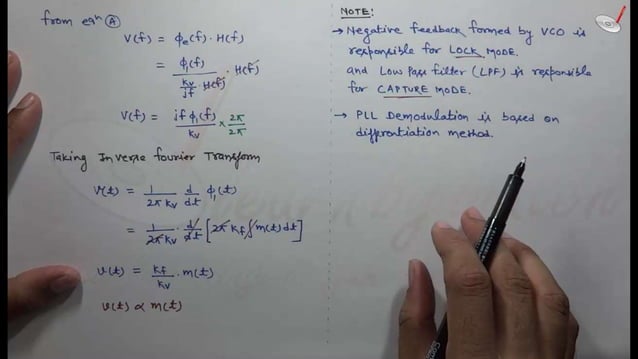 from eqⁿ Ⓐ
V(f) = ϕe(f) · H(f)
= ϕ1(f) / (kv/jf · H(f)) · H(f)
V(f) = jf ϕ1(f) / kv × 2π/2π
Taking Inverse fourier Transform
v(t) = 1/(2π kv) d/dt ϕ1(t)
= 1/(2π kv) · d/dt [2π kf ∫ m(t) dt]
v(t) = kf/kv · m(t)
v(t) ∝ m(t)
NOTE:
→ Negative feedback formed by VCO is
responsible for LOCK MODE.
and Low Pass filter (LPF) is responsible
for CAPTURE MODE.
→ PLL Demodulation is based on
diffrentiation method.